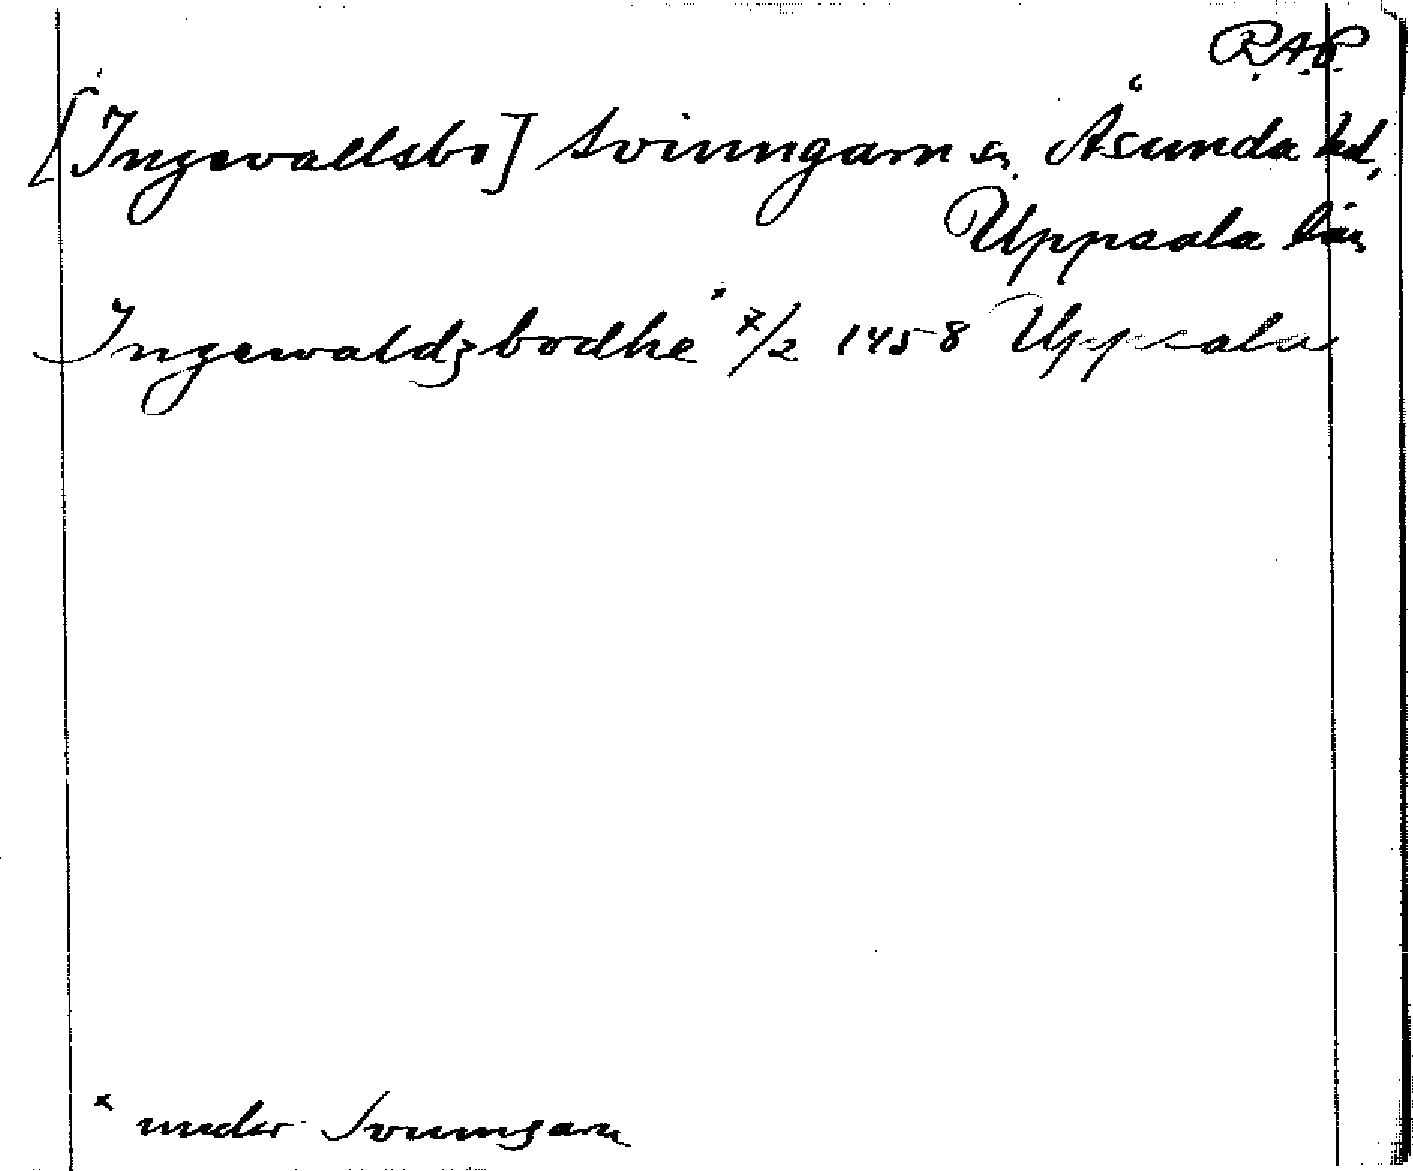 R.A.P.
[Ingevallsbo] Svinngarn sn. Åsunda hd,
Uppsala län
Ingewaldzbodhe* 7/2 1458 Uppsala
* under Svinngarn